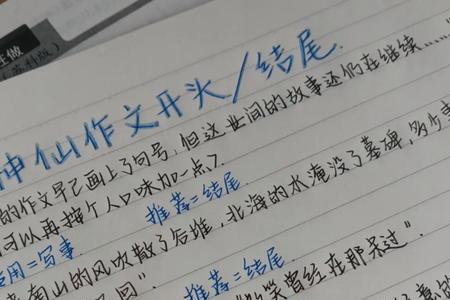 主做
(苏科版)
神仙作文开头/结尾.
的作文早已画上了句号,但这世间的故事还仍在继续……"
可以再按个人口味加一点了.
用=写事 推荐=结尾.
南山的风吹散了谷堆,北海的水淹没了墓碑,多少
推荐=结尾.
曾经在那呆过".